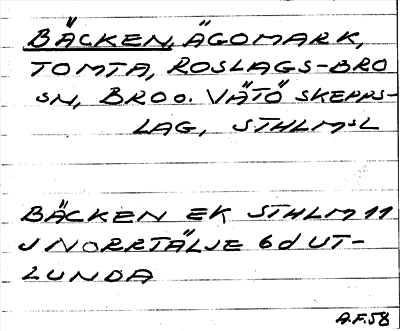 BÄCKEN, ÄGOMARK,
TOMTA, ROSLAGS-BRO
SN, BRO O. VÄTÖ SKEPPS-
LAG, STHLMSL
BÄCKEN EK STHLM 11
J NORRTÄLJE 6d UT-
LUNDA
A.F.58